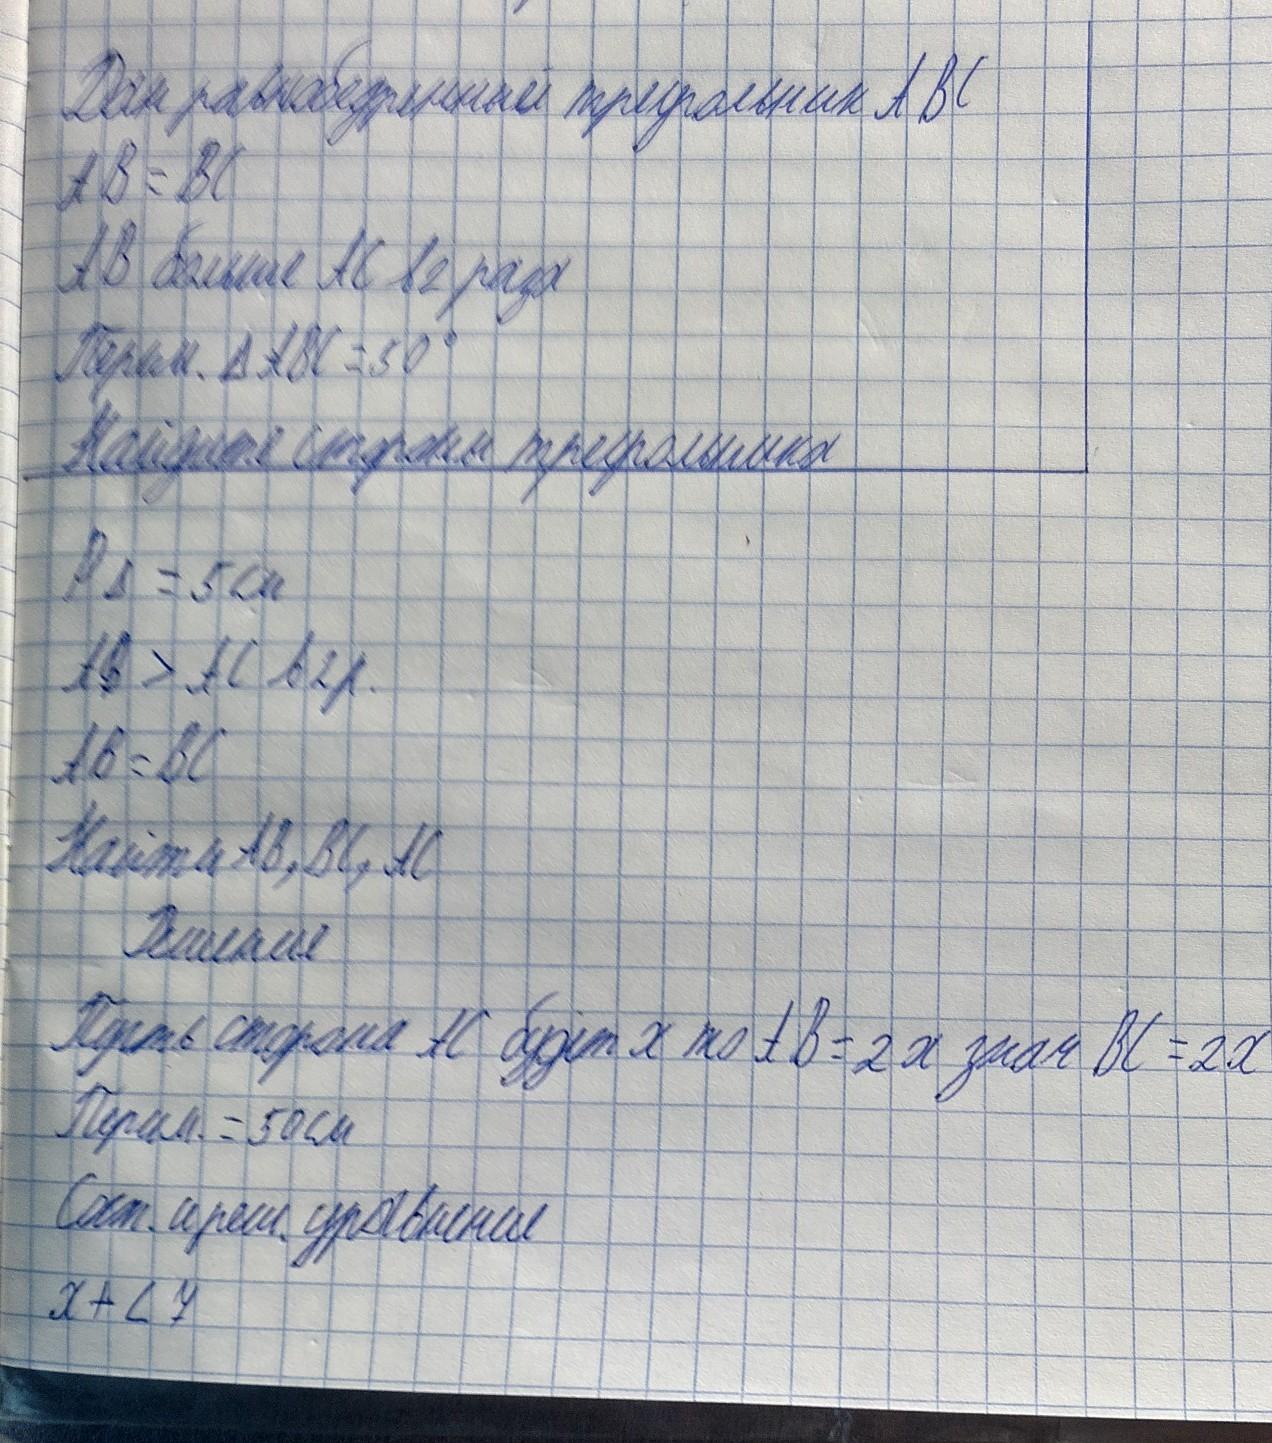 Дан равнобедренный треугольник ABC
AB = BC
AB больше AC в 2 раза
Перим. Δ ABC = 50°
Найдите стороны треугольника
P Δ = 5 см
AB > AC в 2 р.
AB = BC
Найти AB, BC, AC
Решение
Пусть сторона AC будет x то AB = 2x знач BC = 2x
Перим. = 50 см
Сост. и реш. уравнение